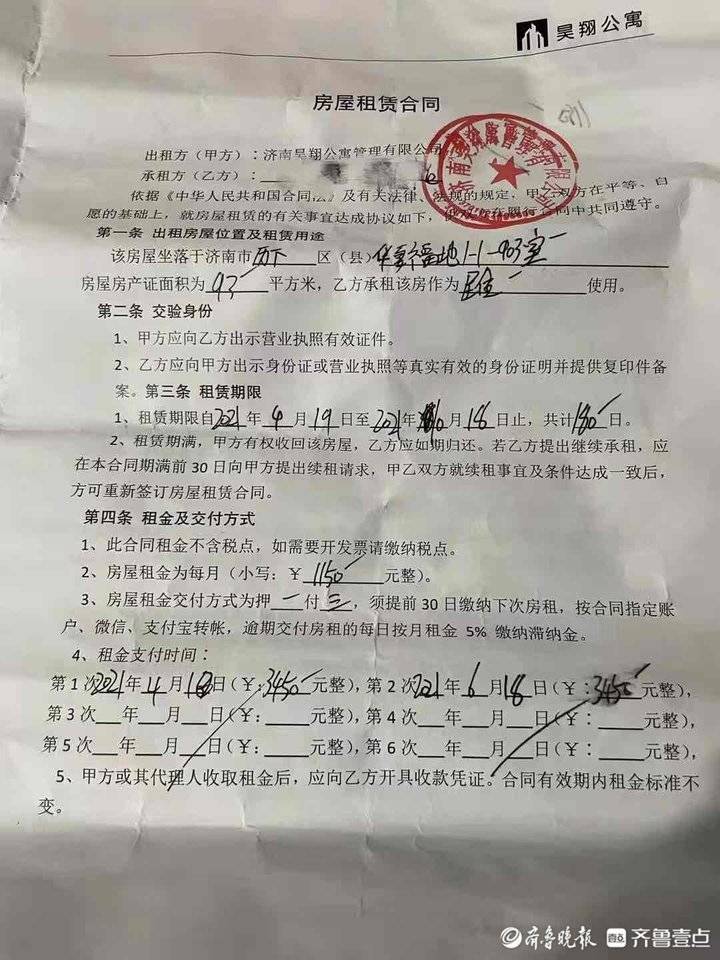 昊翔公寓
房屋租赁合同
出租方（甲方）：济南昊翔公寓管理有限公司
承租方（乙方）：
依据《中华人民共和国合同法》及有关法律、法规的规定，甲乙双方在平等、自
愿的基础上，就房屋租赁的有关事宜达成协议如下，使双方在履行合同中共同遵守。
第一条 出租房屋位置及租赁用途
该房屋坐落于济南市历下区（县）华夏福地1-1-903室
房屋房产证面积为93平方米，乙方承租该房作为居住使用。
第二条 交验身份
1、甲方应向乙方出示营业执照有效证件。
2、乙方应向甲方出示身份证或营业执照等真实有效的身份证明并提供复印件备
案。第三条 租赁期限
1、租赁期限自2021年4月19日至2021年10月18日止，共计180日。
2、租赁期满，甲方有权收回该房屋，乙方应如期归还。若乙方提出继续承租，应
在本合同期满前30日向甲方提出续租请求，甲乙双方就续租事宜及条件达成一致后，
方可重新签订房屋租赁合同。
第四条 租金及交付方式
1、此合同租金不含税点，如需要开发票请缴纳税点。
2、房屋租金为每月（小写：￥1150元整）。
3、房屋租金交付方式为押一付三，须提前30日缴纳下次房租，按合同指定账
户、微信、支付宝转帐，逾期交付房租的每日按月租金 5% 缴纳滞纳金。
4、租金支付时间：
第1次2021年4月18日（￥：3450元整），第2次2021年6月18日（￥：3450元整），
第3次__年__月__日（￥：____元整），第4次__年__月__日（￥：____元整），
第5次__年__月__日（￥：____元整），第6次__年__月__日（￥：____元整），
5、甲方或其代理人收取租金后，应向乙方开具收款凭证。合同有效期内租金标准不
变。
齐鲁晚报 齐鲁壹点